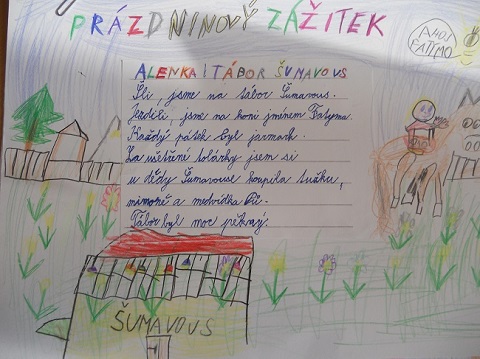 PRÁZDNINOVÝ ZÁŽITEK
AHOJ
FATIMO
ALENKA | TÁBOR ŠUMAVOUS
Šli, jsme na tábor Šumavous.
Jezdili, jsme na koni jménem Fatyma.
Každý pátek byl jarmark.
Za ušetřené tolárky jsem si
u dědy Šumavouse koupila tužku,
a medvídka Pú.
Tábor byl moc pěkný.
ŠUMAVOUS